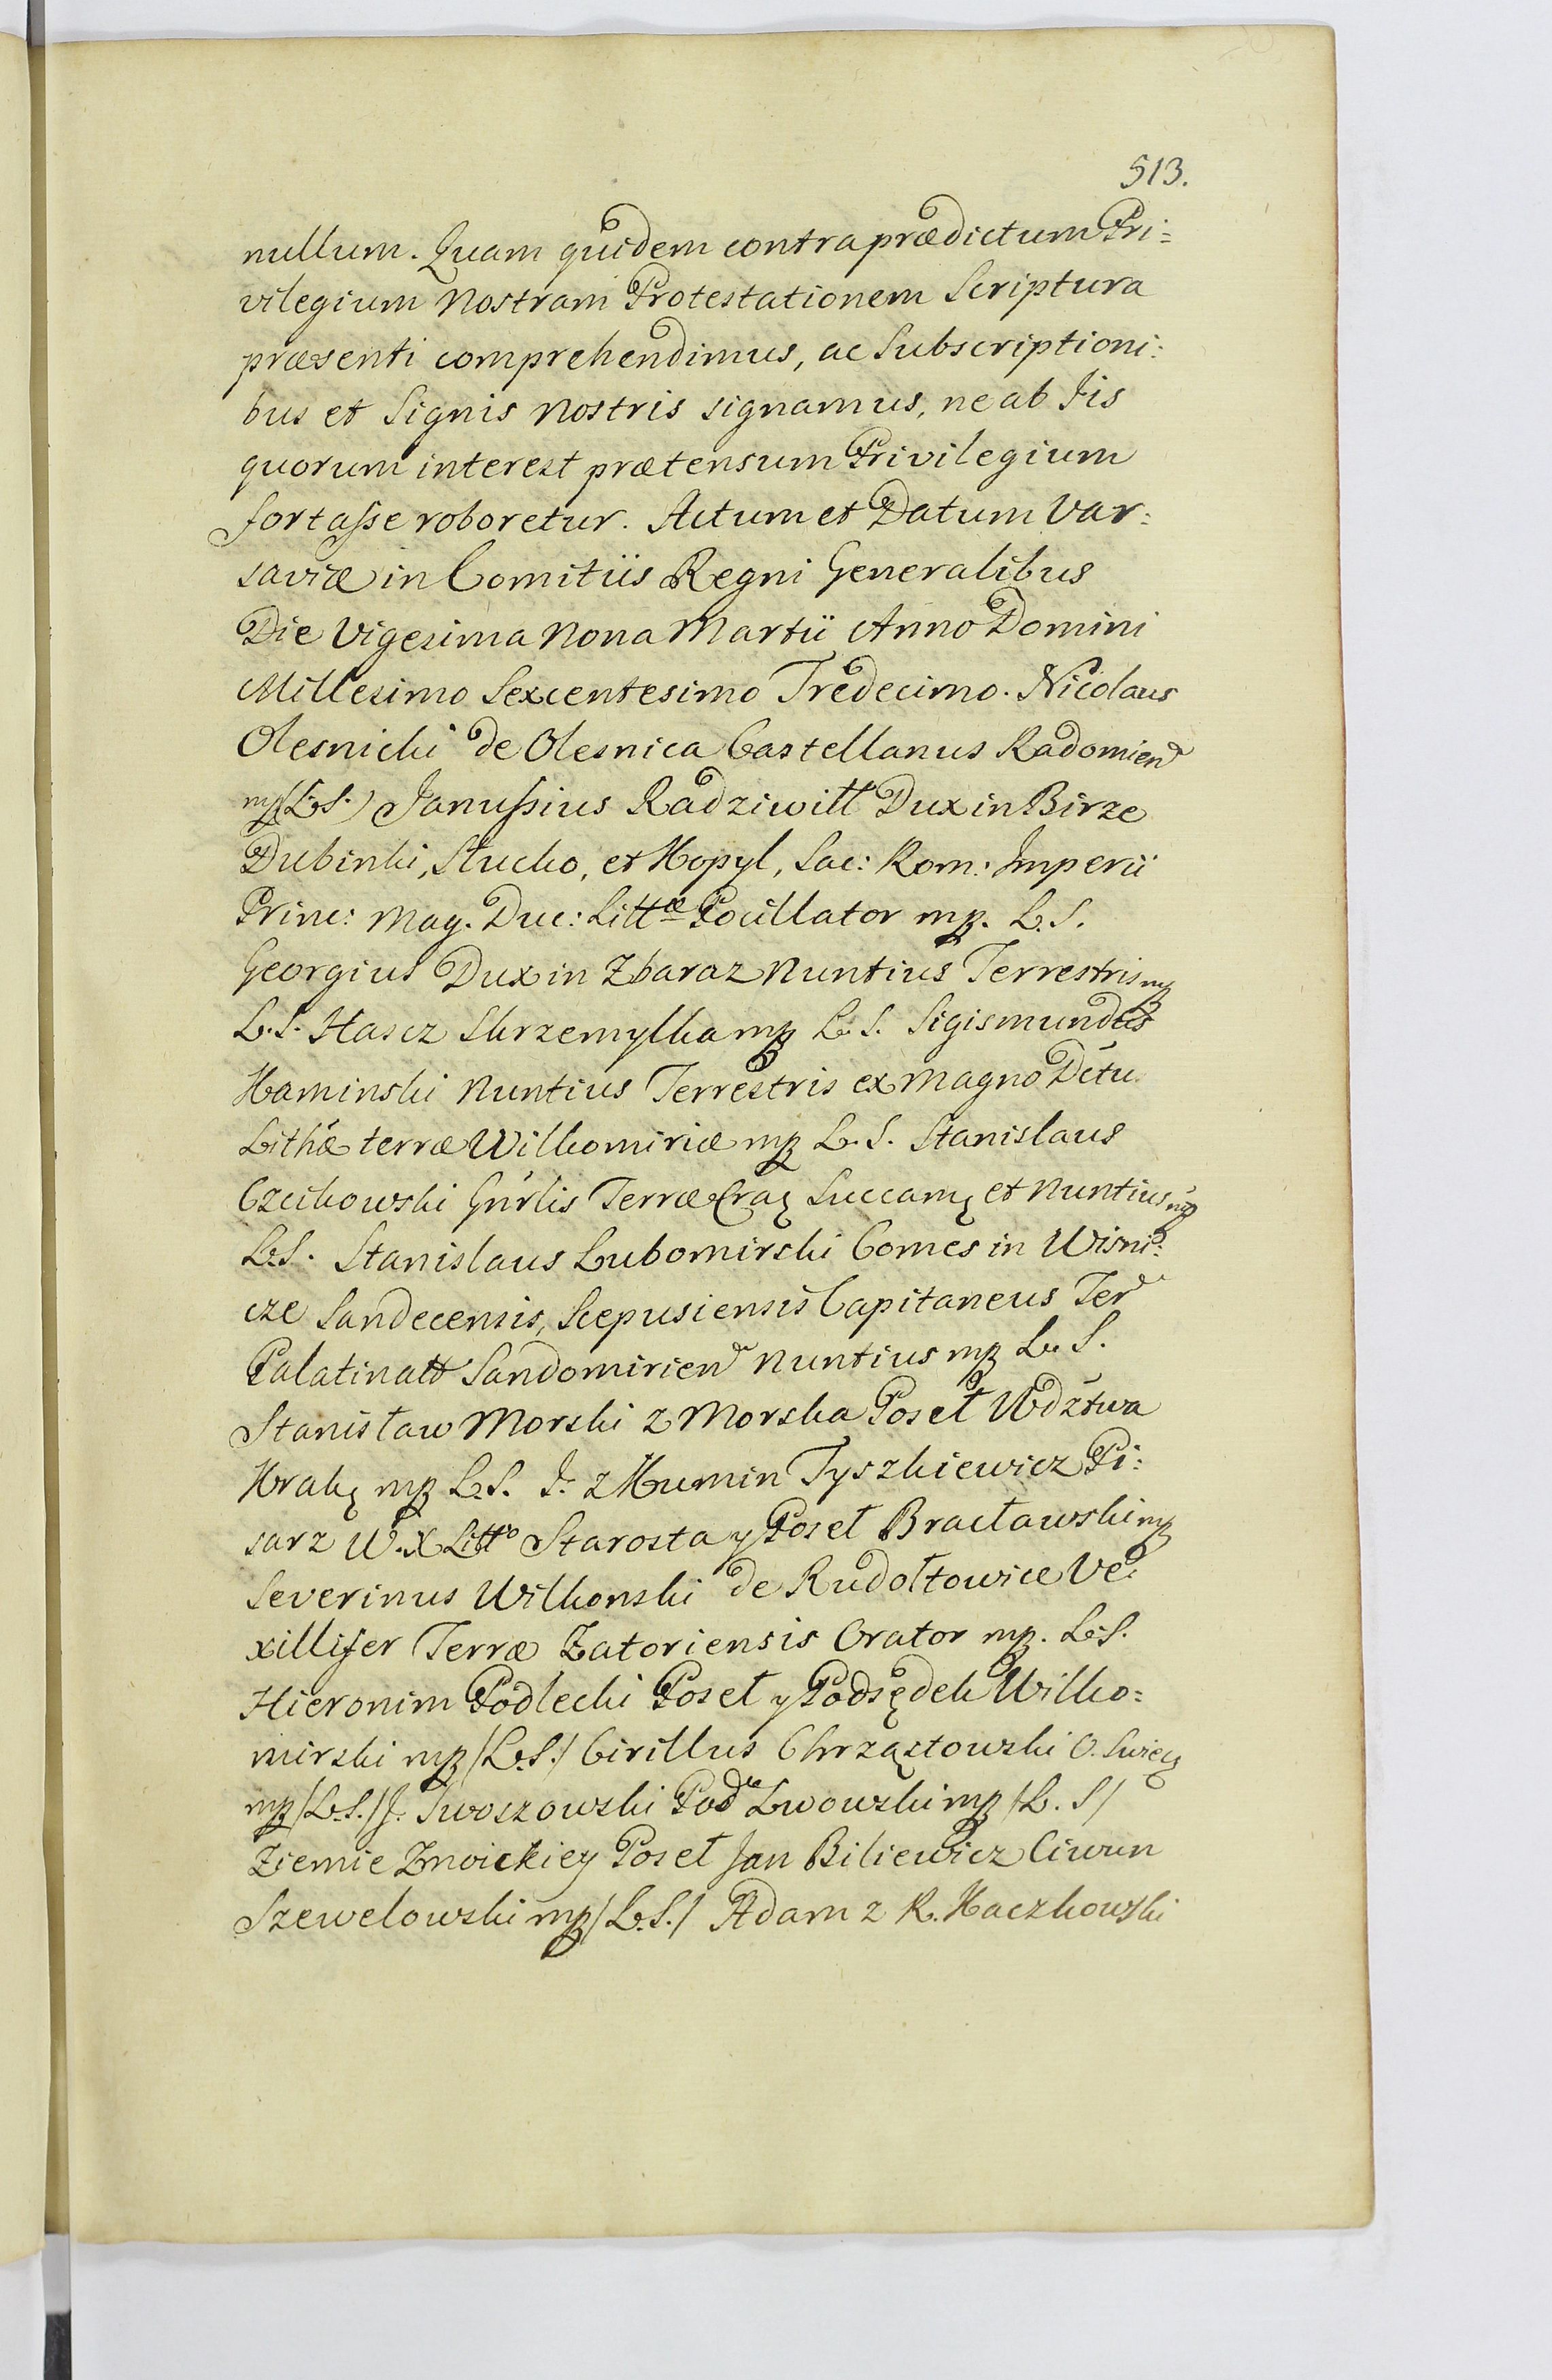 513.
nullum. Quam quidem contra prædictum Pri=
vilegium Nostram Protestationem Scriptura
præsenti comprehendimus, ac Subscriptioni:
bus et Signis Nostris signamus, ne ab Iis
quorum interest prætensum Privilegium
fortasse roboretur. Actum et Datum Var:
saviæ in Comitiis Regni Generalibus
Die Vigesima Nona Martii Anno Domini
Millesimo Sexcentesimo Tredecimo. Nicolaus
Olesnicki de Olesnica Castellanus Radomien
mp (L.S.) Janussius Radziwiłł Dux in Birze
Dubinki, Słucko, et Kopyl, Sac: Rom: Imperii
Princ: Mag. Duc: Littæ Pocillator mp. L.S.
Georgius Dux in Zbaraz Nuntius Terrestris mp
L.S. Hascz Skrzemylka mp L.S. Sigismundus
Kaminski Nuntius Terrestris ex Magno Dctu
Lithæ terræ Wilkomiriæ mp L.S. Stanislaus
Czechowski Gnrlis Terræ Crac Succam et Nuntius mp
L.S. Stanislaus Lubomirski Comes in Wisni:
cze Sandecensis, Scepusiensis Capitaneus Ter
Palatinatt Sandomirien Nuntius mp L.S.
Stanisław Morski z Morska Poseł Wdztwa
Krak mp L.S. J. z Kumin Tyszkiewicz Pi:
sarz W.X Litto Starosta y Poseł Bracławski mp
Severinus Wilkonski de Rudołtowice Ve:
xillifer Terræ Zatoriensis Orator mp. L.S.
Hieronim Podlecki Poseł y Podsędek Wilko=
mirski mp /L.S./ Cirillus Chrząstowski O. Swiec
mp /L.S./ J. Swoszowski Pod Lwowski mp /L.S/
Ziemie Zmoickiey Poseł Jan Biliewicz Ciwun
Szewelowski mp /L.S./ Adam z K. Kaczkowski